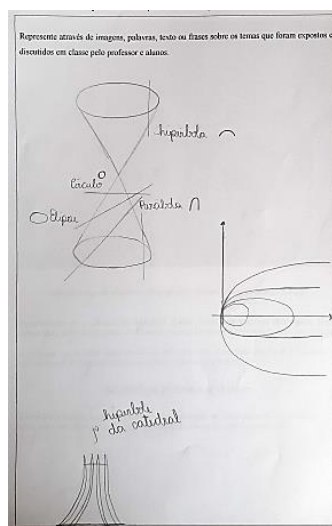 Represente através de imagens, palavras, texto ou frases sobre os temas que foram expostos e
discutidos em classe pelo professor e alunos.
hiperbola
Círculo
Parábola
Elipse
hiperbole
da catedral